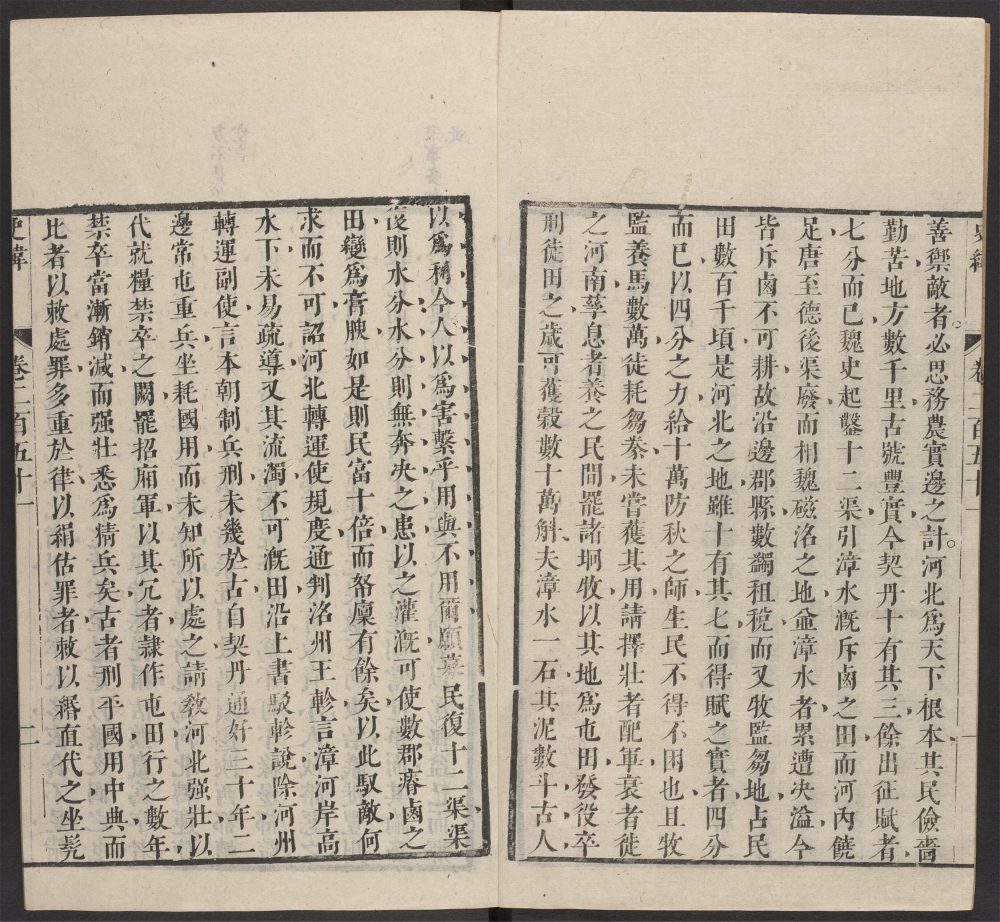 善禦敵者必思務農實邊之計。河北爲天下根本其民儉嗇
勤苦地方數千里古號豐實今契丹十有其三餘出征賦者
七分而已魏史起鑿十二渠引漳水漑斥鹵之田而河內饒
足唐至德後渠廢而相魏磁洺之地並漳水者累遭决溢今
皆斥鹵不可耕故沿邊郡縣數蠲租稅而又牧監芻地占民
田數百千頃是河北之地雖十有其七而得賦之實者四分
而已以四分之力給十萬防秋之師生民不得不困也且牧
監養馬數萬徒耗芻豢未嘗獲其用請擇壯者配軍衰者徙
之河南孳息者養之民間罷諸坰牧以其地爲屯田發役卒
刑徒田之歲可獲穀數十萬斛夫漳水一石其泥數斗古人
以爲利今人以爲害繫乎用與不用爾願募民復十二渠渠
復則水分水分則無奔决之患以之灌漑可使數郡瘠鹵之
田變爲膏腴如是則民富十倍而帑廩有餘矣以此馭敵何
求而不可詔河北轉運使規度通判洺州王軫言漳河岸高
水下未易疏導又其流濁不可漑田沿上書駁軫說除河州
轉運副使言本朝制兵刑未幾於古自契丹通好三十年二
邊常屯重兵坐耗國用而未知所以處之請敎河北强壯以
代就糧禁卒之闕罷招廂軍以其冗者隷作屯田行之數年
禁卒當漸銷減而强壯悉爲精兵矣古者刑平國用中典而
比者以敕處罪多重於律以絹估罪者敕以緡直代之坐髠
史緯
卷二百五十一
二